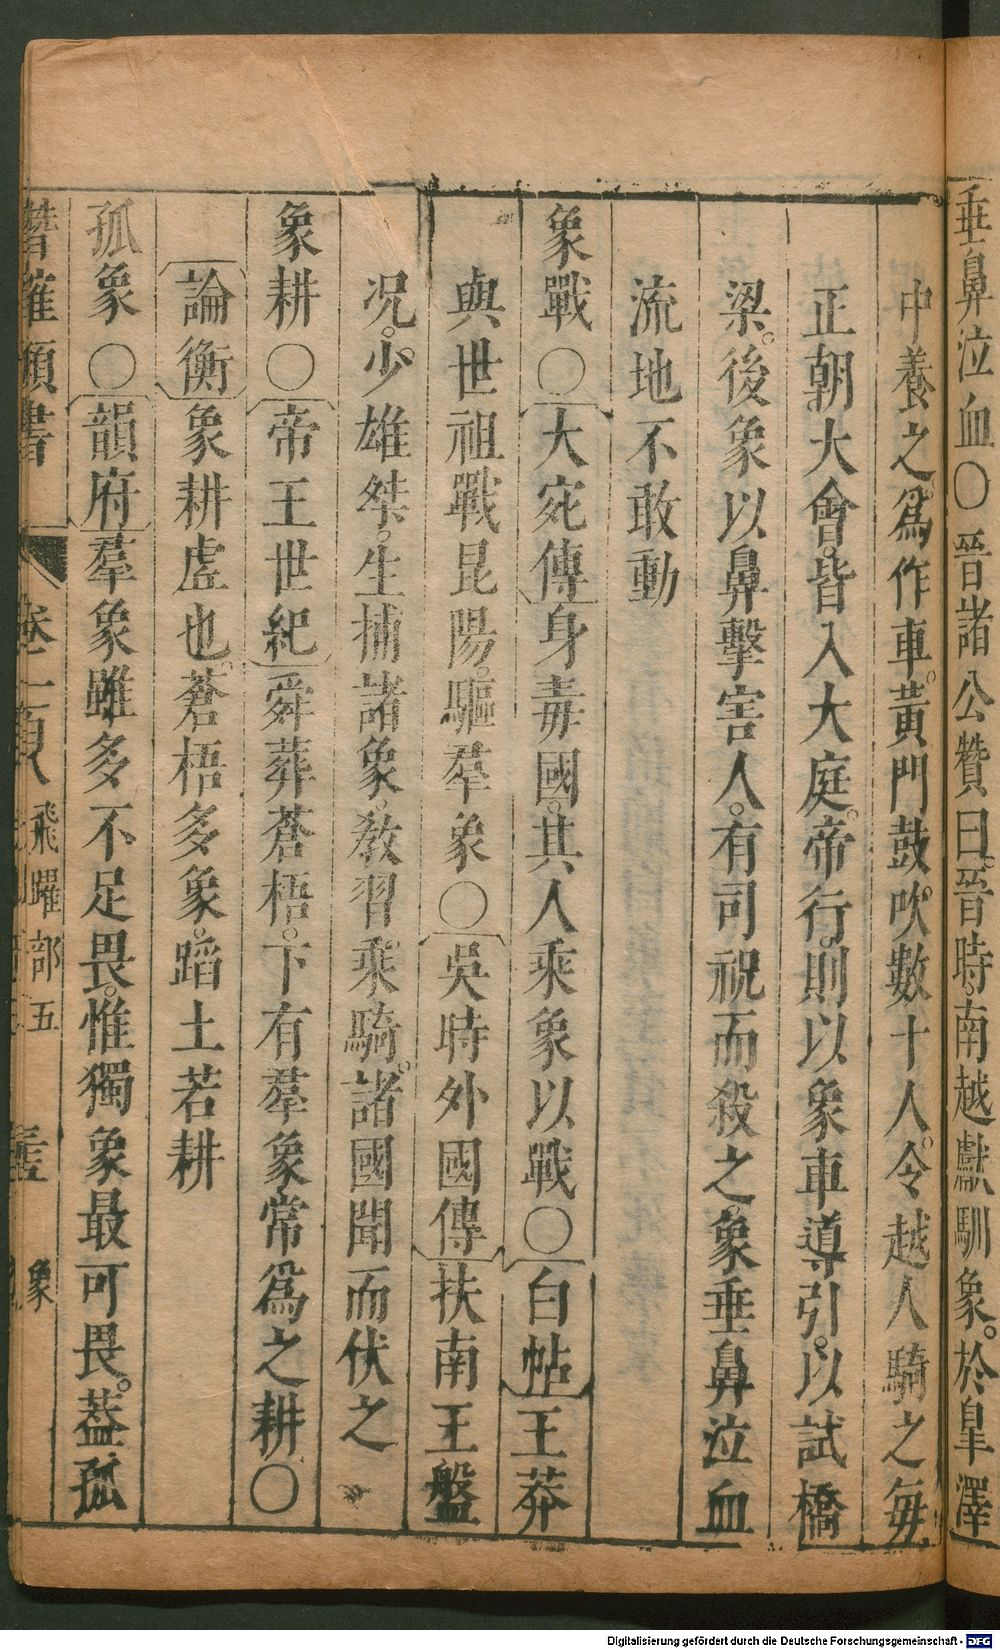 垂鼻泣血〇晉諸公贊曰。晉時。南越獻馴象。於皐澤
中養之。爲作車。黃門鼓吹。數十人。令越人騎之。每
正朝大會。皆入大庭。帝行。則以象車導引。以試橋
梁。後象以鼻擊害人。有司祝而殺之。象垂鼻泣血
流地不敢動
象戰〇大宛傳身毒國。其人乘象以戰〇白帖王莽
與世祖戰昆陽。驅羣象〇吳時外國傳扶南王盤
况。少雄桀。生捕諸象。敎習乘騎。諸國聞而伏之
象耕〇帝王世紀舜葬蒼梧。下有羣象常爲之耕〇
論衡象耕虛也。蒼梧多象。蹈土若耕
孤象〇韻府羣象雖多不足畏。惟獨象最可畏。葢孤
類書 飛躍部五 象
Digitalisierung gefördert durch die Deutsche Forschungsgemeinschaft - DFG